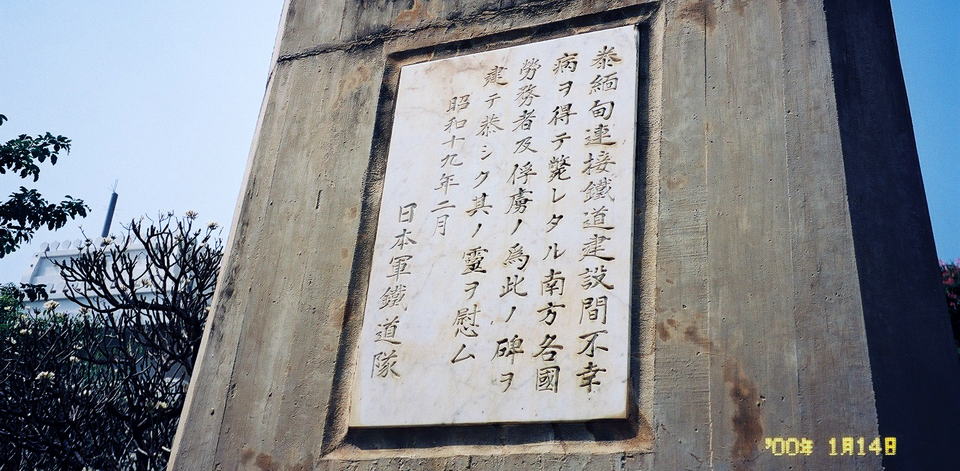 泰緬甸連接鐵道建設間不幸
病ヲ得テ斃レタル南方各國
勞務者及俘虜ノ為此ノ碑ヲ
建テ恭シク其ノ靈ヲ慰ム
昭和十九年二月
日本軍鐵道隊
'00年 1月14日